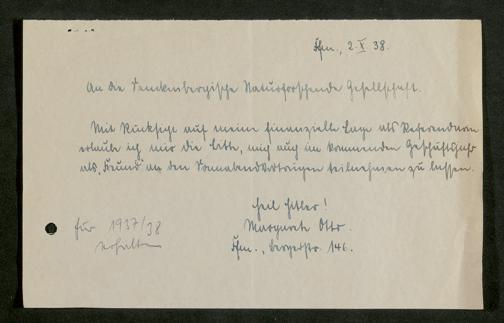 Ffm., 2. X. 38.
An die Senckenbergische Naturforschende Gesellschaft.
Mit Rücksicht auf meine finanzielle Lage als Referendarin
erlaube ich mir die Bitte, mich auch im kommenden Geschäftsjahr
als „Freund" an den Sonnabendvorträgen teilnehmen zu lassen.
Heil Hitler!
Margarete Otto.
Ffm., Bergerstr. 146.
für 1937/38
erhalten